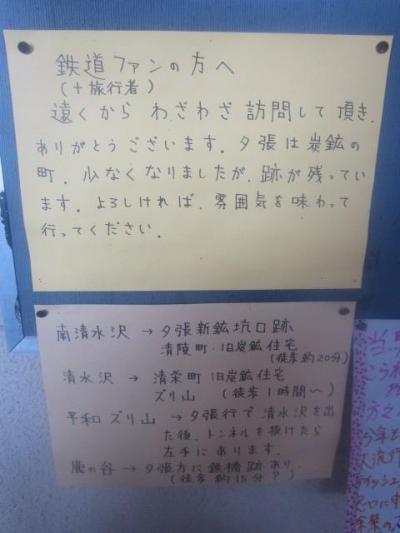 鉄道ファンの方へ
(+旅行者)
遠くから わざわざ 訪問して頂き、
ありがとうございます。夕張は炭鉱の
町。少なくなりましたが、跡が残ってい
ます。よろしければ、雰囲気を味わって
行ってください。
南清水沢 → 夕張新鉱坑口跡
清陵町・旧炭鉱住宅
(徒歩約20分)
清水沢 → 清栄町 旧炭鉱住宅
ズリ山 (徒歩1時間〜)
平和 ズリ山 → 夕張行で 清水沢を出
た後、トンネルを抜けたら
左手にあります。
鹿の谷 → 夕張方に鉄橋跡あり。
(徒歩約15分?)